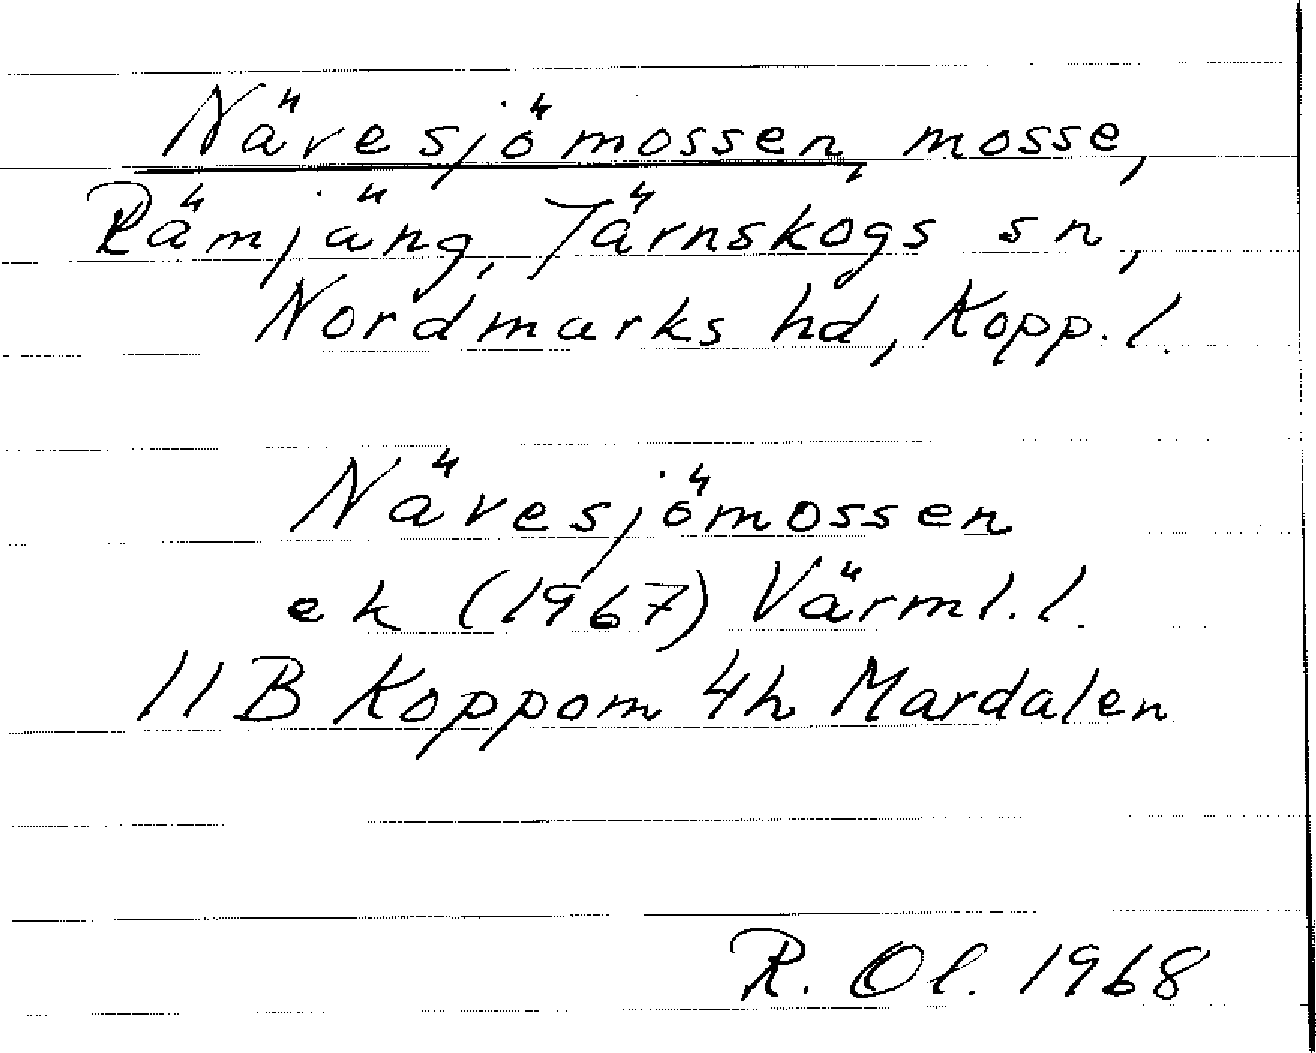 Nävesjömossen, mosse,
Rämjäng, Järnskogs sn,
Nordmarks hd, Kopp. l.
Nävesjömossen
ek (1967) Värml. l.
11 B Koppom 4h Mardalen
R. Ol. 1968